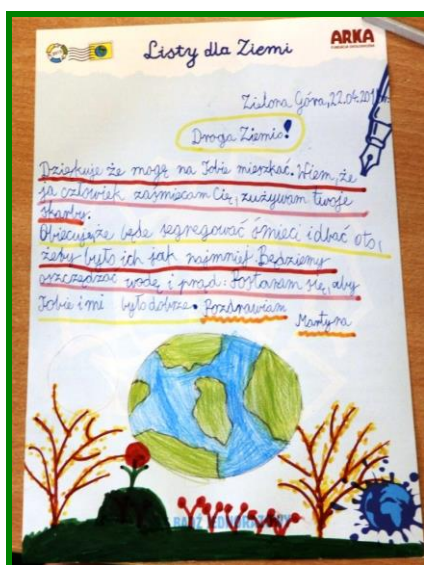 Listy dla Ziemi
ARKA
Zielona Góra, 22.04.201
Droga Ziemio!
Dziękuje że mogę na Tobie mieszkać. Wiem, że
ja człowiek zaśmiecam Cię, zużywam twoje
skarby.
Obiecuję, że będe segregować śmieci i dbać o to,
żeby było ich jak najmniej. Będziemy
oszczędzać wodę i prąd. Postaram się, aby
Tobie i mi było dobrze. Pozdrawiam
Martyna